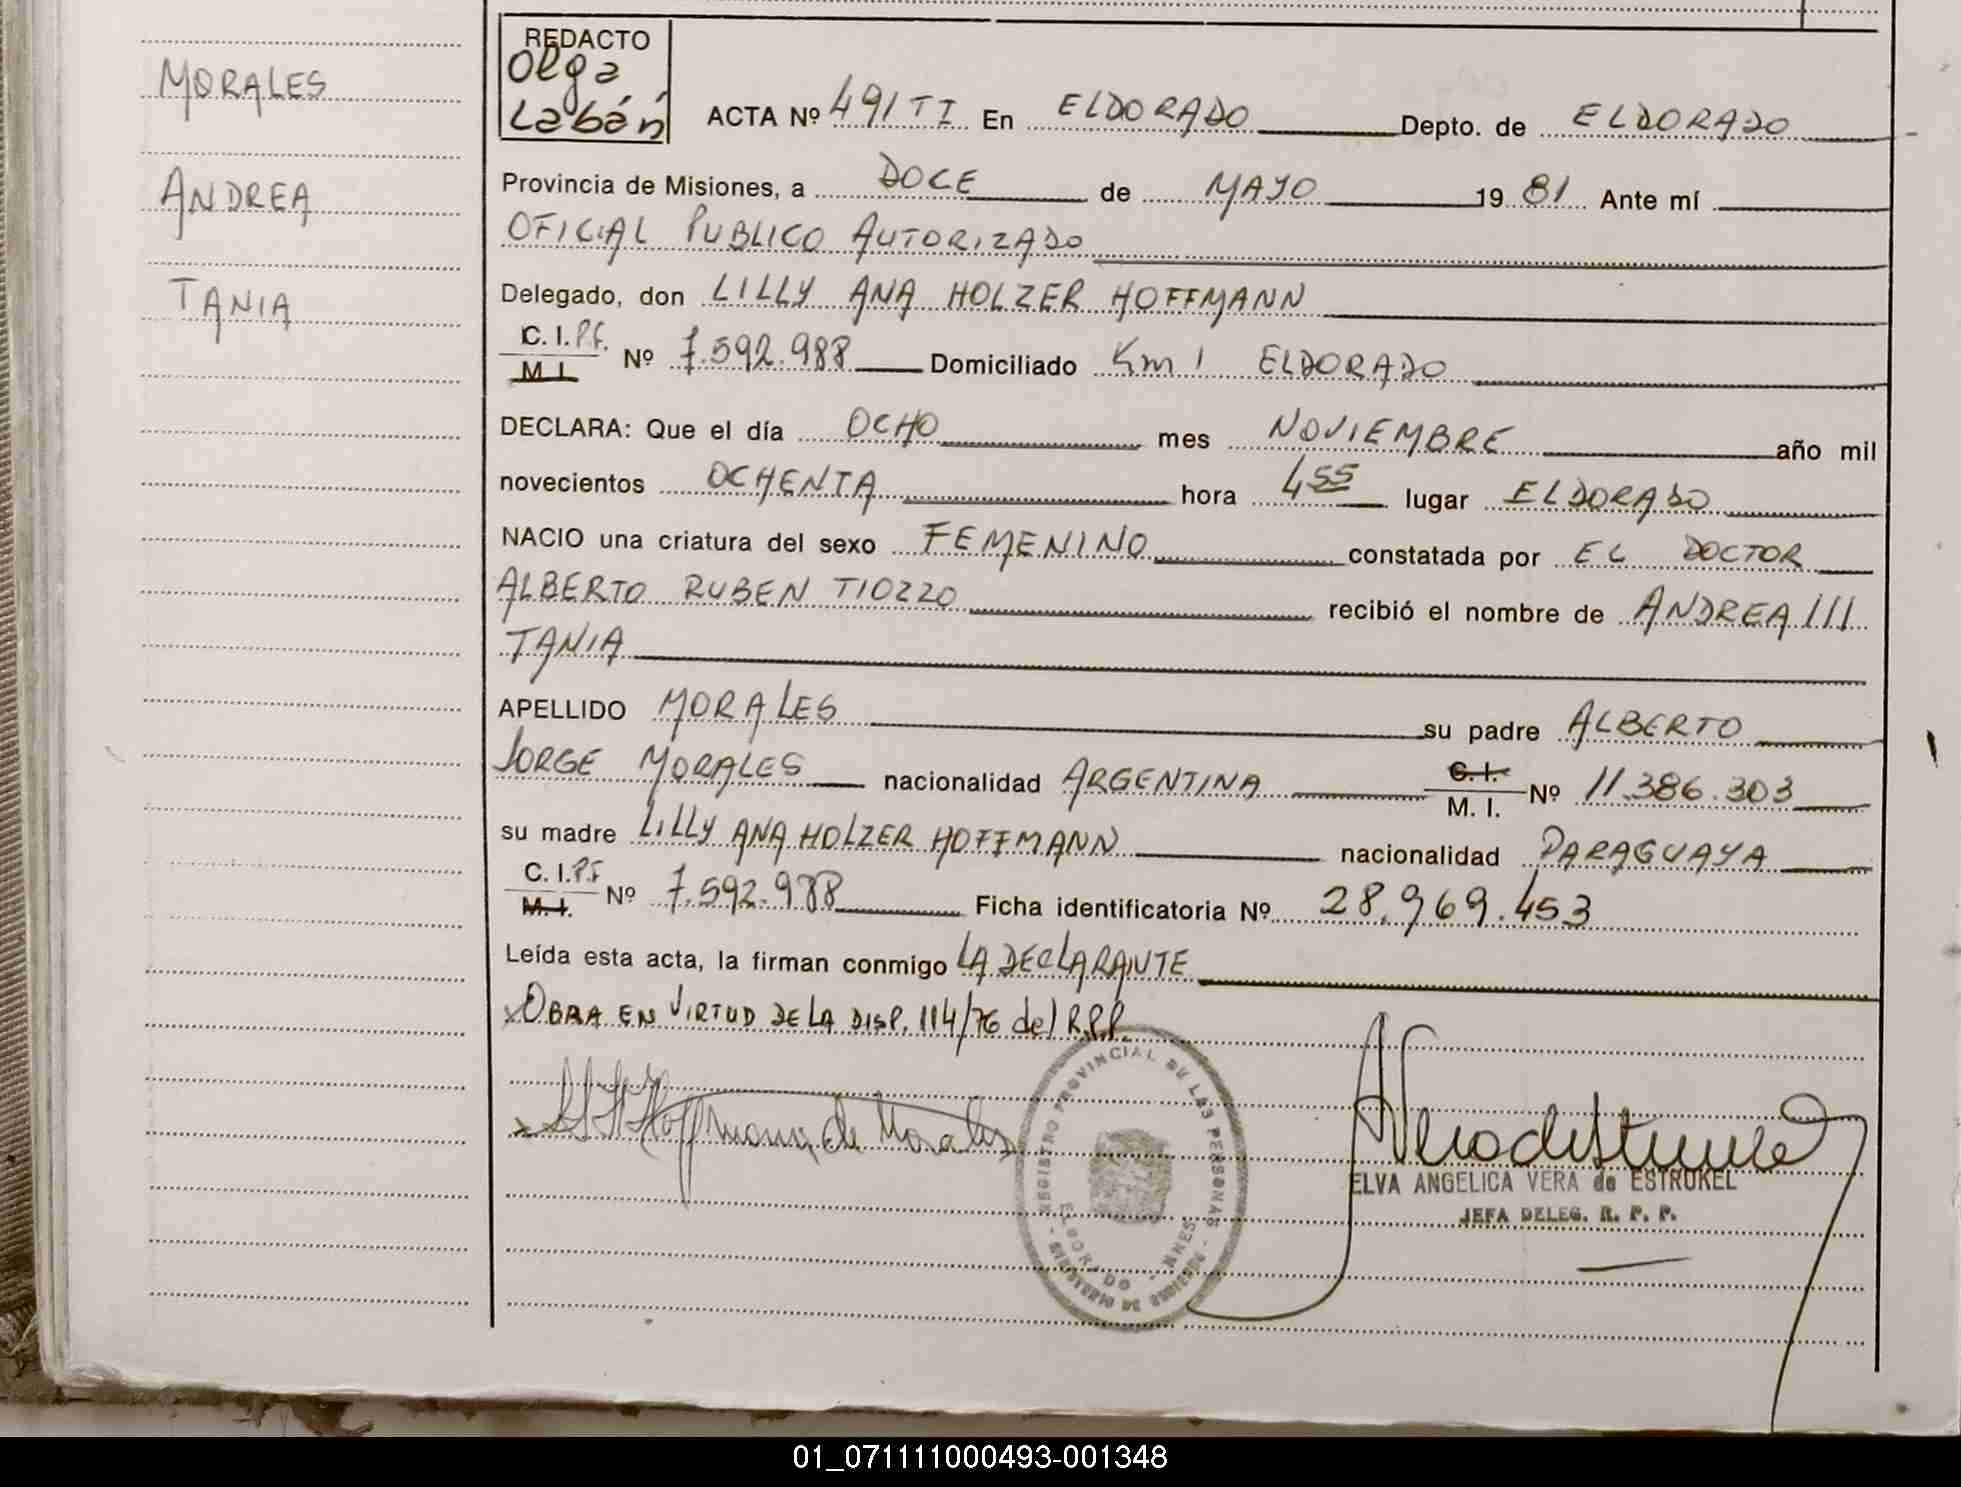 MORALES
ANDREA
TANIA
REDACTO
Olga
Labán
ACTA Nº 491 TI En ELDORADO Depto. de ELDORADO
Provincia de Misiones, a DOCE de MAYO 1981 Ante mí
OFICIAL PUBLICO AUTORIZADO
Delegado, don LILLY ANA HOLZER HOFFMANN
C. I. P.F.
M. I. Nº 7.592.988 Domiciliado Km 1 ELDORADO
DECLARA: Que el día OCHO mes NOVIEMBRE año mil
novecientos OCHENTA hora 4 55 lugar ELDORADO
NACIO una criatura del sexo FEMENINO constatada por EL DOCTOR
ALBERTO RUBEN TIOZZO recibió el nombre de ANDREA ///
TANIA
APELLIDO MORALES su padre ALBERTO
JORGE MORALES nacionalidad ARGENTINA C. I. M. I. Nº 11.386.303
su madre LILLY ANA HOLZER HOFFMANN nacionalidad PARAGUAYA
C. I. P.F
M. I. Nº 7.592.988 Ficha identificatoria Nº 28.969.453
Leída esta acta, la firman conmigo LA DECLARANTE
OBRA EN VIRTUD DE LA DISP. 114/76 del R.P.P.
Hoffmann de Morales
REGISTRO PROVINCIAL DE LAS PERSONAS
ELDORADO - MNES
ELVA ANGELICA VERA de ESTRUKEL
JEFA DELEG. R. P. P.
01_071111000493-001348